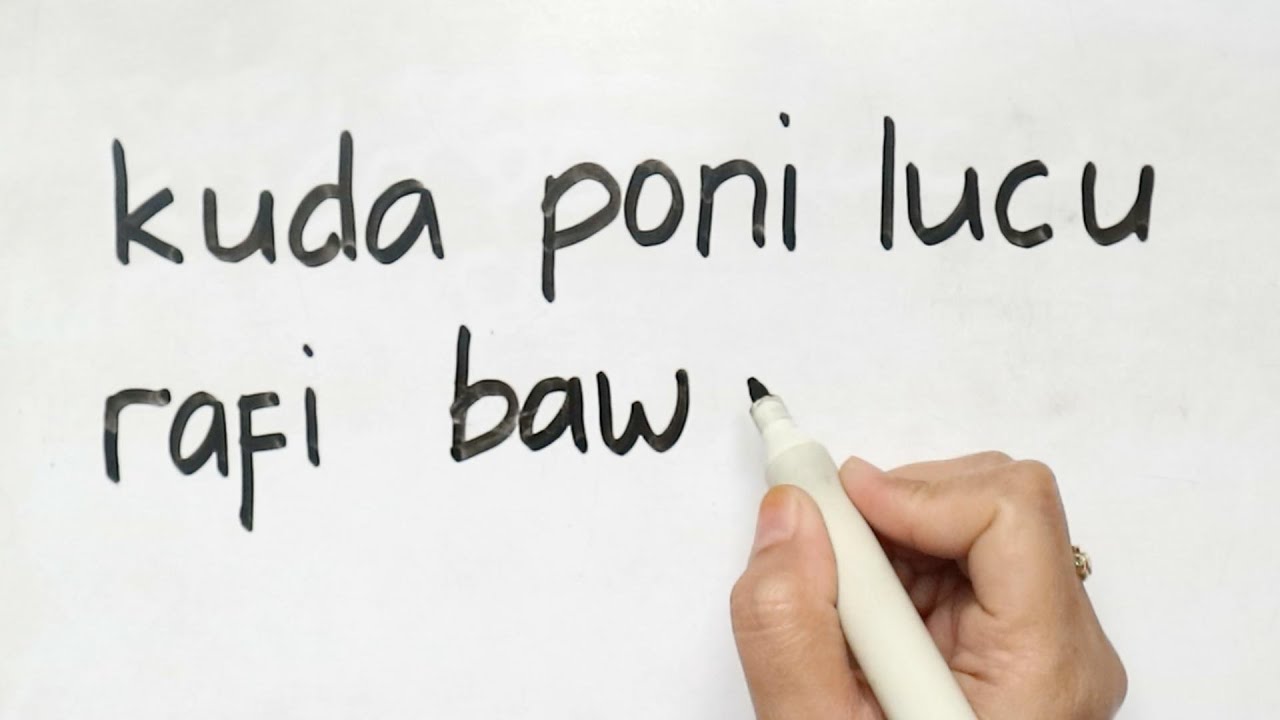 kuda poni lucu
rafi baw